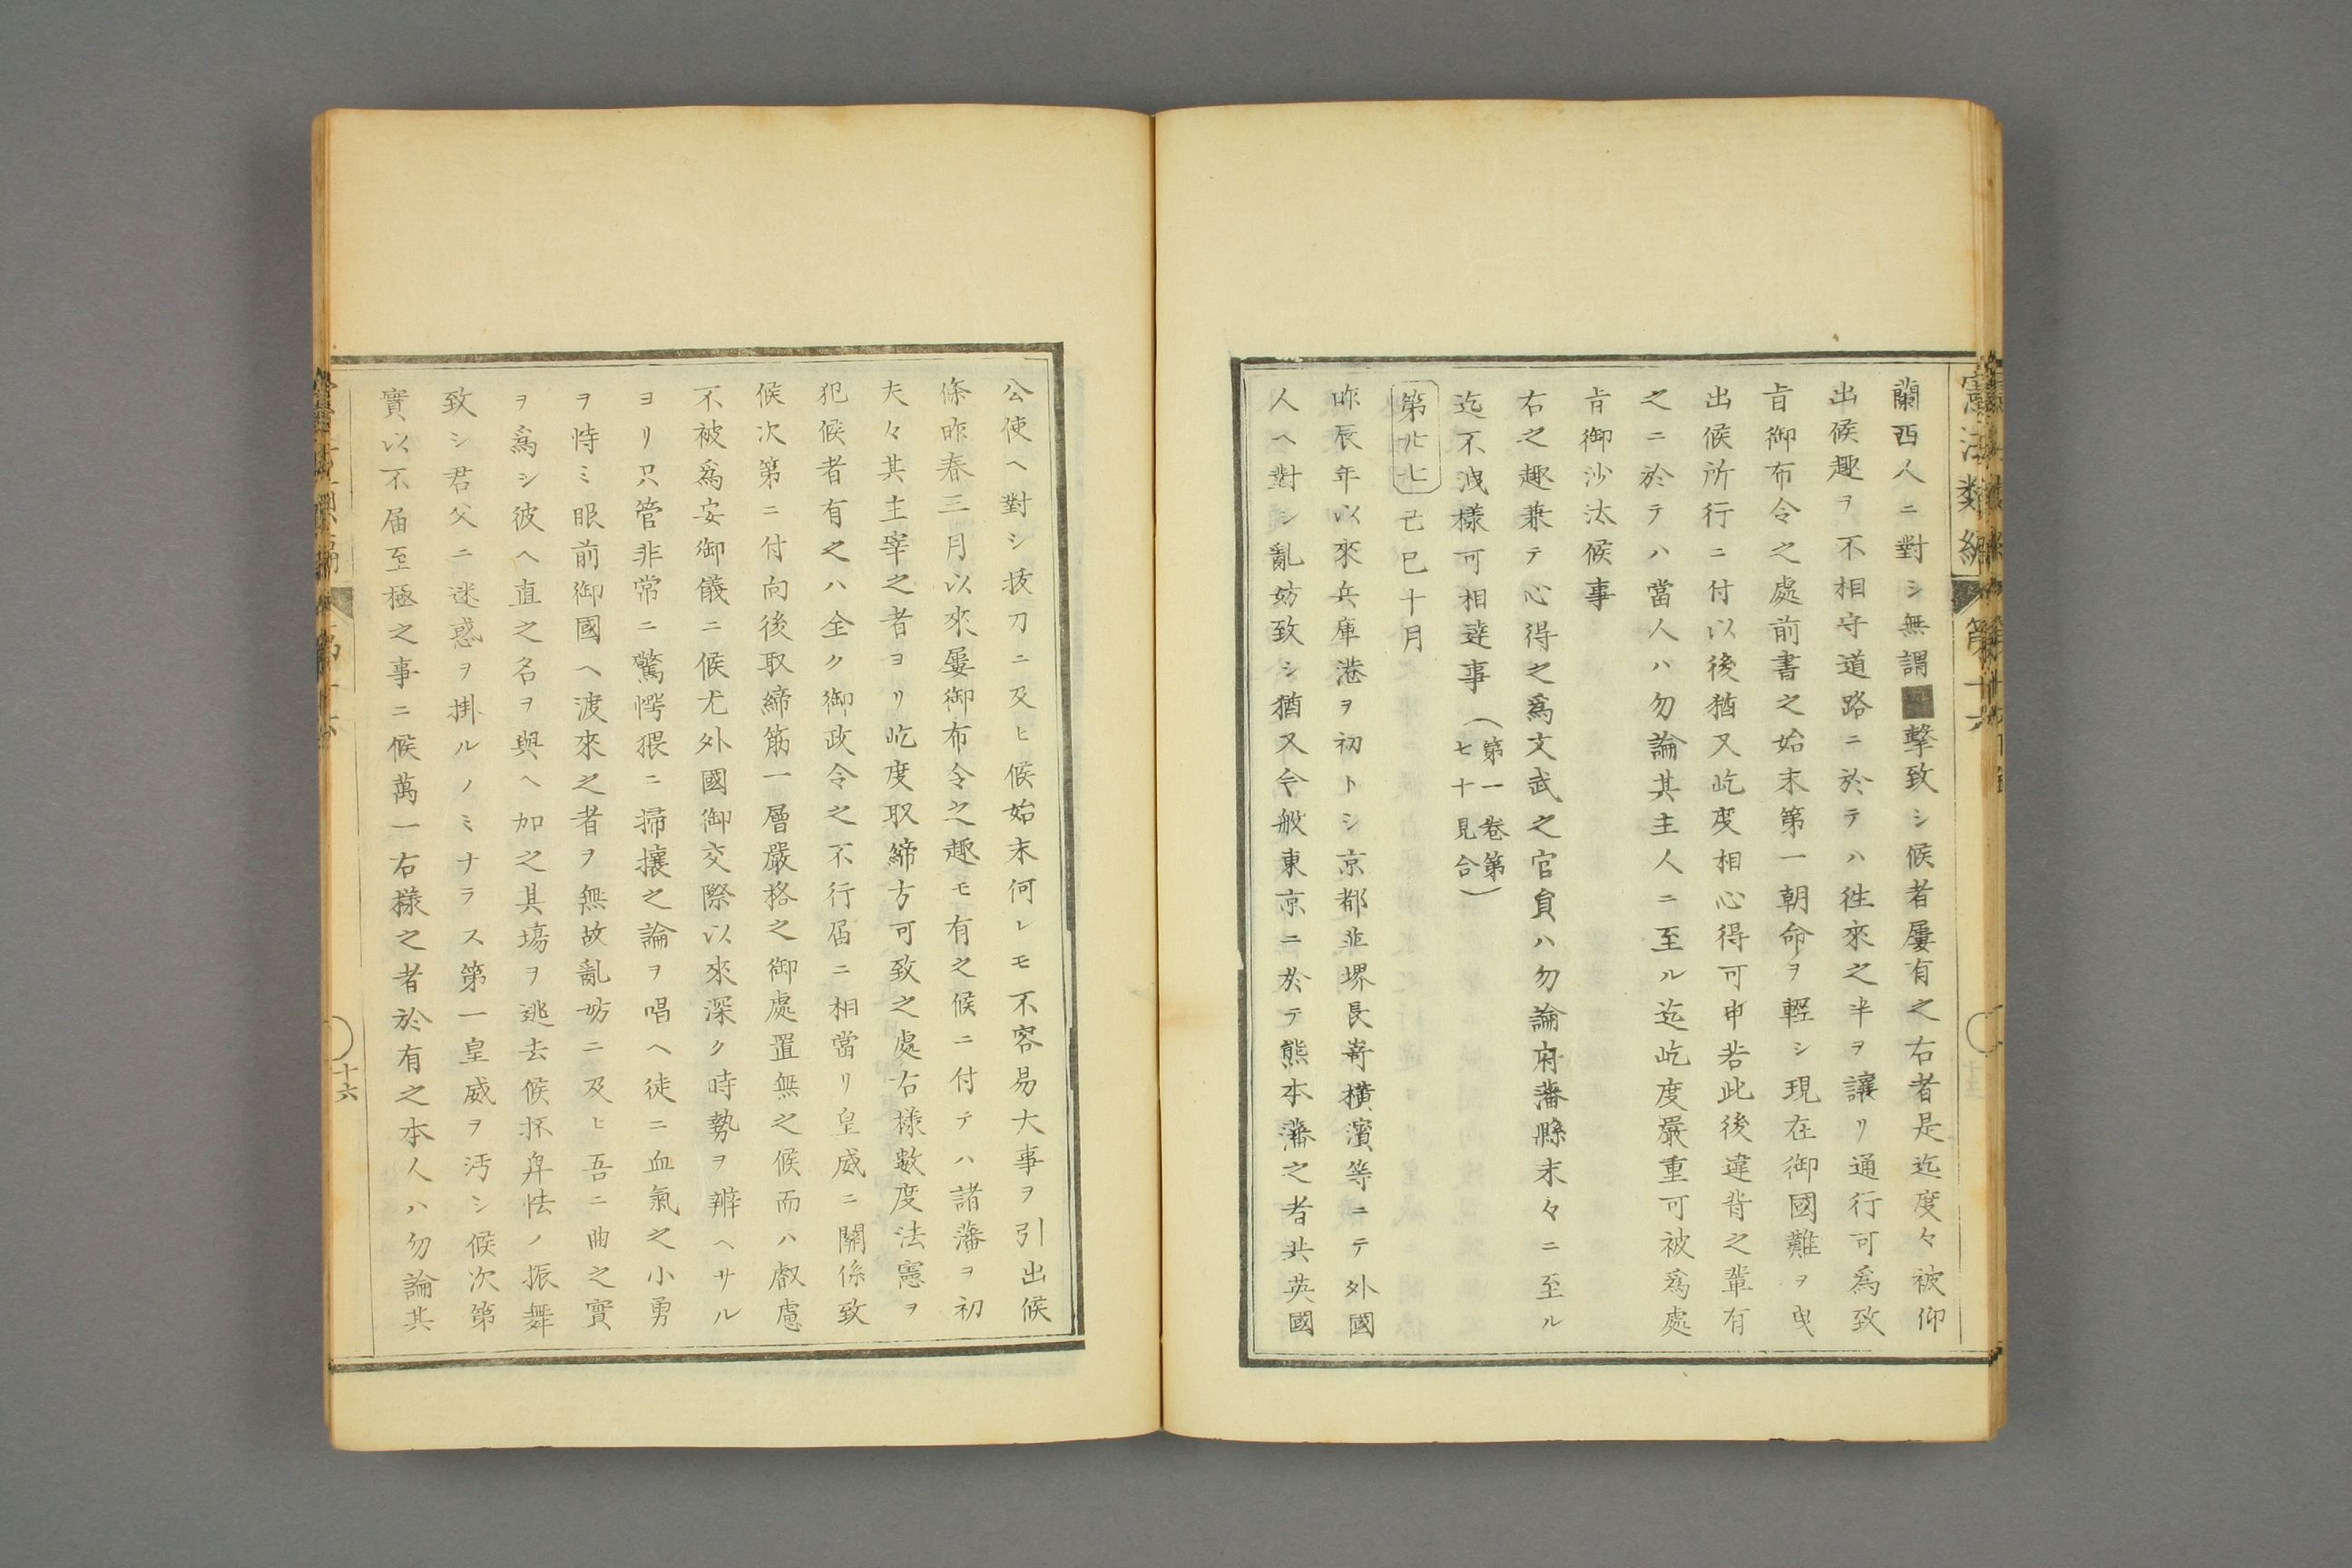 憲法類編 第十六
蘭西人ニ對シ無謂■撃致シ候者屢有之右者是迄度々被仰
出候趣ヲ不相守道路ニ於テハ徃來之半ヲ讓リ通行可爲致
旨御布令之處前書之始末第一朝命ヲ輕シ現在御國難ヲ曳
出候所行ニ付以後猶又屹度相心得可申若此後違背之輩有
之ニ於テハ當人ハ勿論其主人ニ至ル迄屹度嚴重可被爲處
旨御沙汰候事
右之趣兼テ心得之爲文武之官員ハ勿論府藩縣末々ニ至ル
迄不洩様可相達事 (第一卷第七十見合)
第廿七 己巳十月
昨辰年以來兵庫港ヲ初トシ京都並堺長嵜横濱等ニテ外國
人ヘ對シ亂妨致シ猶又今般東京ニ於テ熊本藩之者共英國
公使ヘ對シ抜刀ニ及ヒ候始末何レモ不容易大事ヲ引出候
條昨春三月以來屢御布令之趣モ有之候ニ付テハ諸藩ヲ初
夫々其主宰之者ヨリ屹度取締方可致之處右様數度法憲ヲ
犯候者有之ハ全ク御政令之不行届ニ相當リ皇威ニ關係致
候次第ニ付向後取締筋一層嚴格之御處置無之候而ハ叡慮
不被爲安御儀ニ候尤外國御交際以來深ク時勢ヲ辨ヘサル
ヨリ只管非常ニ驚愕猥ニ掃攘之論ヲ唱ヘ徒ニ血氣之小勇
ヲ恃ミ眼前御國ヘ渡來之者ヲ無故亂妨ニ及ヒ吾ニ曲之實
ヲ爲シ彼ヘ直之名ヲ與ヘ加之其塲ヲ逃去候抔卑怯ノ振舞
致シ君父ニ迷惑ヲ掛ルノミナラス第一皇威ヲ汚シ候次第
實以不届至極之事ニ候萬一右様之者於有之本人ハ勿論其
十六